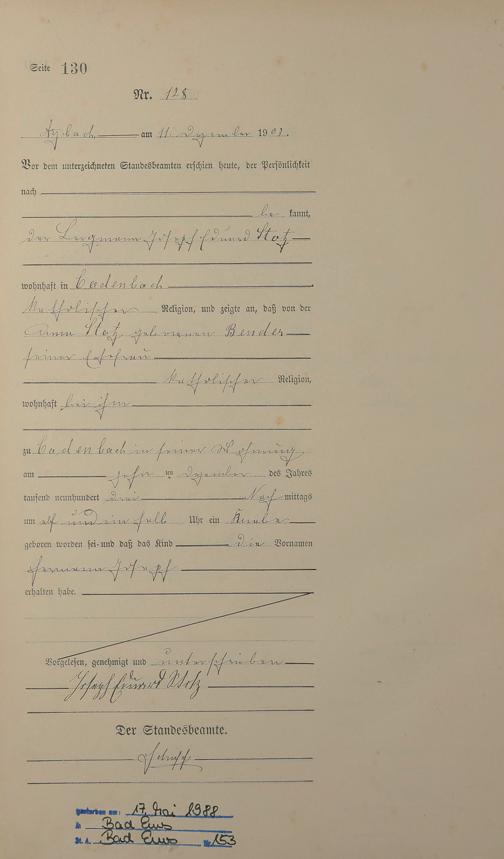 Seite 130
Nr. 128
am 11 Dezember 190
Vor dem unterzeichneten Standesbeamten erschien heute, der Persönlichkeit
nach
be kannt,
der Bergmann Joseph Eduard Stotz
wohnhaft in Cadenbach
katholischer Religion, und zeigte an, daß von der
Anna Stotz geborenen Bender
seiner Ehefrau
katholischer Religion,
wohnhaft bei ihm
zu Cadenbach in seiner Wohnung
am zehn ten Dezember des Jahres
tausend neunhundert drei Nach mittags
um elf und ein halb Uhr ein Knabe
geboren worden sei und daß das Kind die Vornamen
Hermann Joseph
erhalten habe.
Vorgelesen, genehmigt und unterschrieben
Joseph Eduard Stotz
Der Standesbeamte.
gestorben am: 17. Mai 1988
in Bad Ems
St. A. Bad Ems Nr. 153